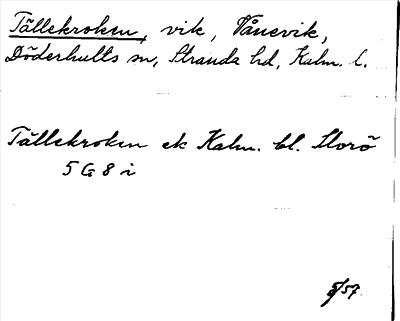 Tällekroken, vik, Vånevik,
Döderhults sn, Stranda hd, Kalm. l.
Tällekroken ek Kalm. bl. Storö
5 G 8 i
/57